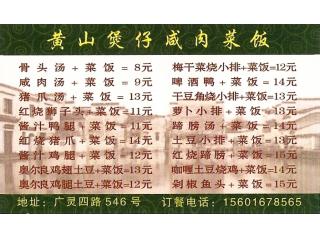 黄山煲仔咸肉菜饭
骨头汤+菜饭=8元
咸肉汤+菜饭=9元
猪爪汤+菜饭=13元
红烧狮子头+菜饭=11元
酱汁鸭腿+菜饭=11元
红烧猪爪+菜饭=14元
酱汁鸡腿+菜饭=12元
奥尔良鸡翅土豆+菜饭=13元
奥尔良鸡腿土豆+菜饭=15元
梅干菜烧小排+菜饭=12元
啤酒鸭+菜饭=14元
干豆角烧小排+菜饭=13元
萝卜小排+菜饭=13元
蹄膀汤+菜饭=14元
土豆小排+菜饭=13元
红烧蹄膀+菜饭=15元
咖喱土豆鸡块+菜饭=13元
剁椒鱼头+菜饭=15元
地址:广灵四路546号 订餐电话:15601678565